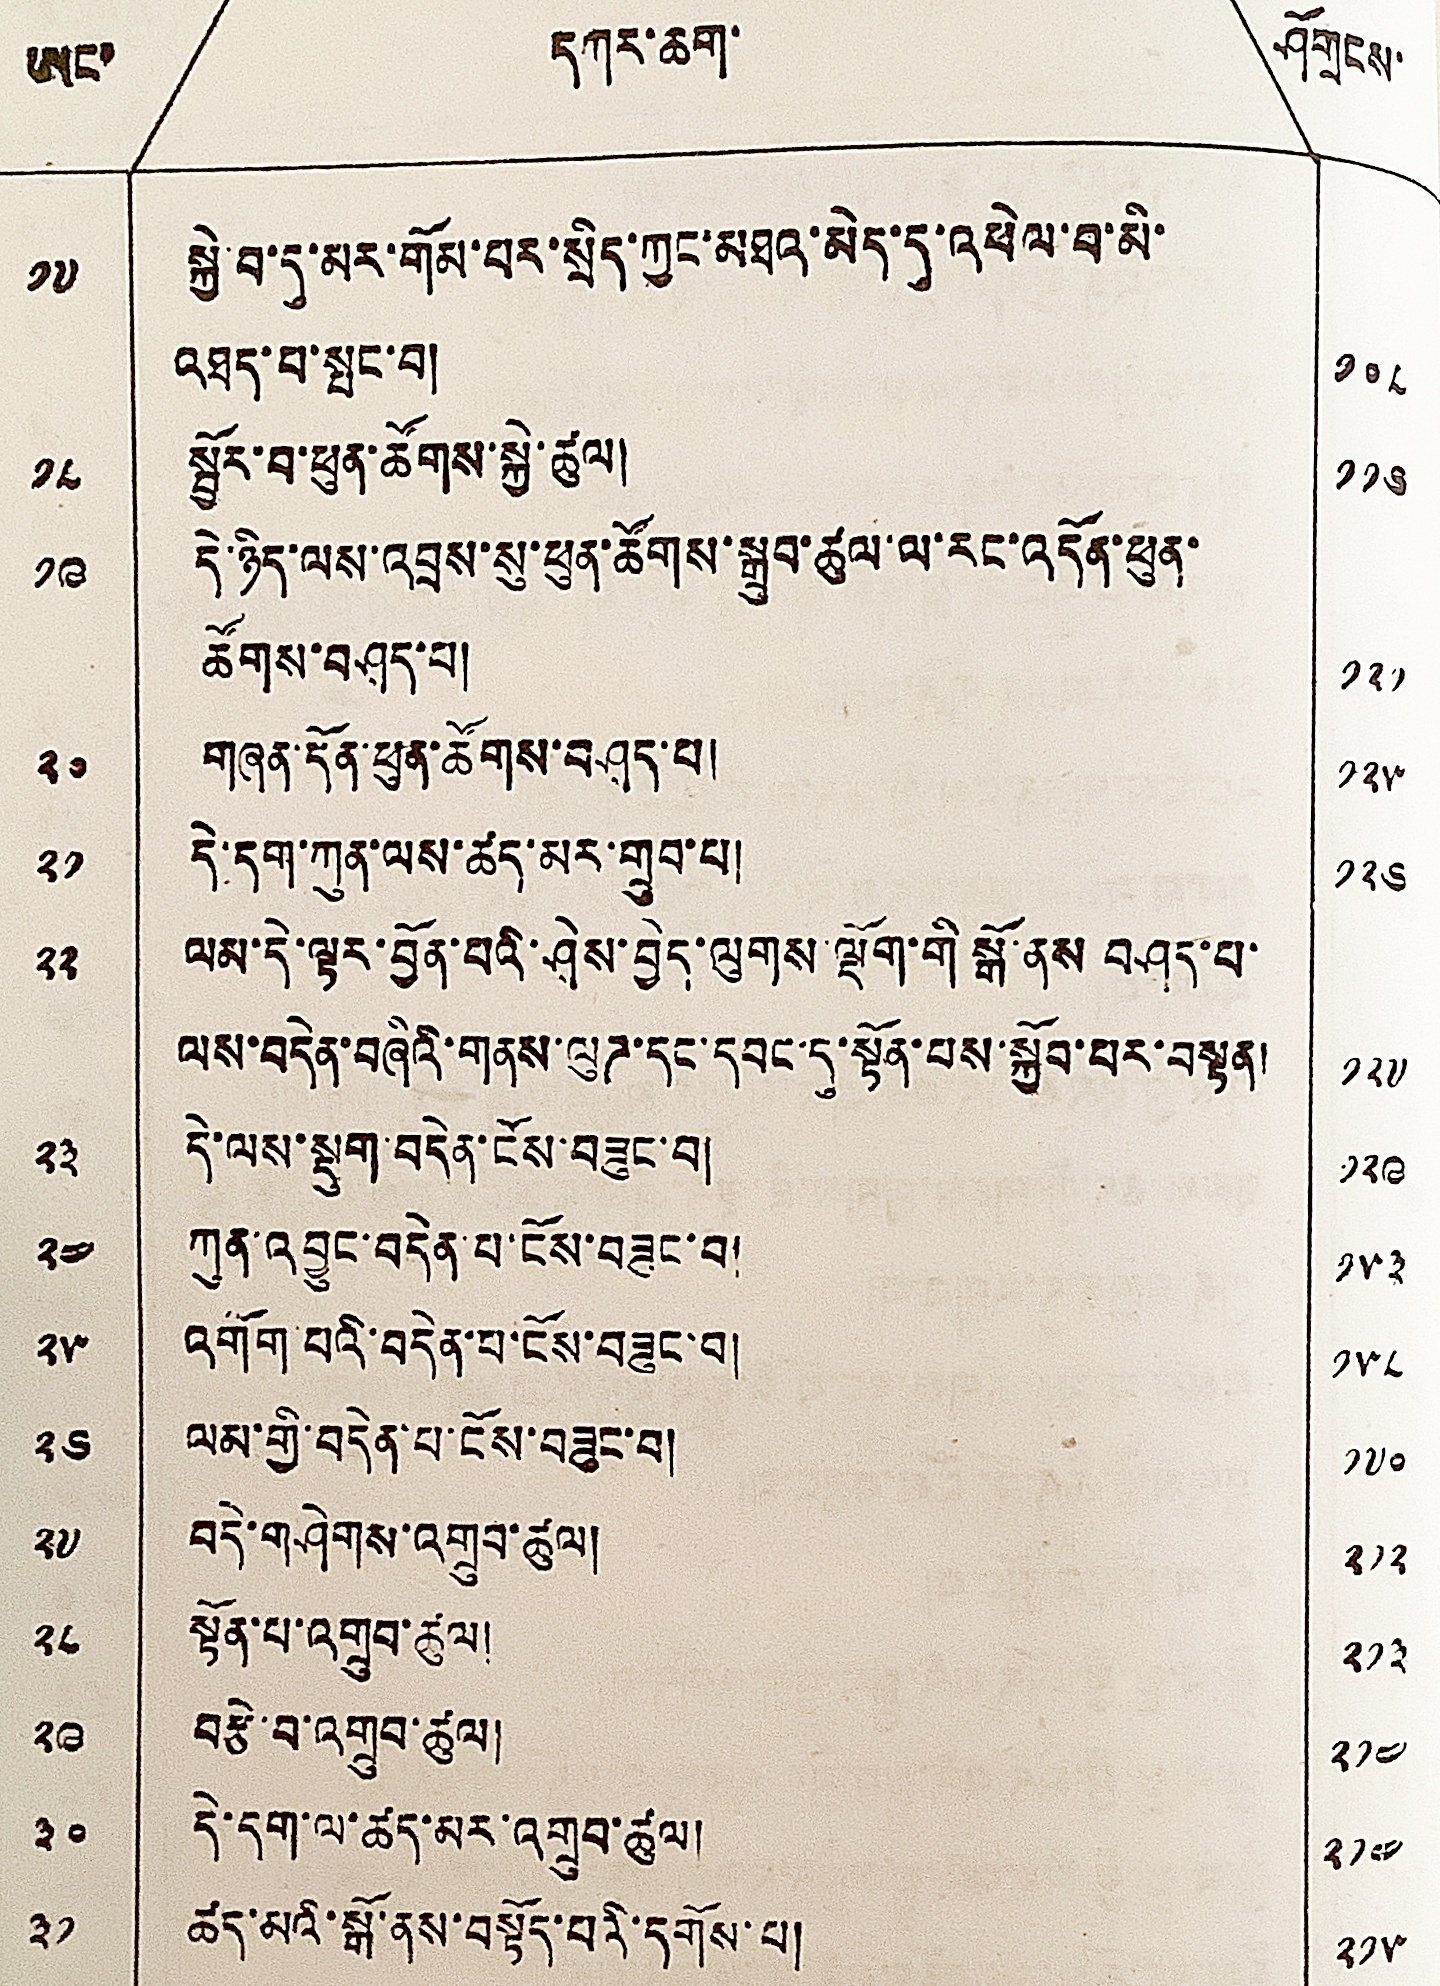 ཨང་ དཀར་ཆག་ ཤོགྲངས་
༡༧ སྐྱེ་བ་དུ་མར་གོམ་པར་སྲིད་ཀྱང་མཐའ་མེད་དུ་འཕེལ་བ་མི་
འཐད་པ་སྤང་བ། ༡༠༨
༡༨ སྦྱོར་བ་ཕུན་ཚོགས་སྐྱེ་ཚུལ། ༡༡༦
༡༩ དེ་ཉིད་ལས་འབྲས་སུ་ཕུན་ཚོགས་སྒྲུབ་ཚུལ་ལ་རང་འདོན་ཕུན་
ཚོགས་བཤད་པ། ༡༢༡
༢༠ གཞན་དོན་ཕུན་ཚོགས་བཤད་པ། ༡༢༥
༢༡ དེ་དག་ཀུན་ལས་ཚད་མར་གྲུབ་པ། ༡༢༦
༢༢ ལམ་དེ་ལྟར་བྱོན་པའི་ཤེས་བྱེད་ལུགས་ལྡོག་གི་སྒོ་ནས་བཤད་པ་
ལས་བདེན་བཞིའི་གནས་ལུཊ་དང་དབང་དུ་སྟོན་པས་སྐྱོབ་པར་བསྟན། ༡༢༧
༢༣ དེ་ལས་སྡུག་བདེན་ངོས་བཟུང་བ། ༡༢༩
༢༤ ཀུན་འབྱུང་བདེན་པ་ངོས་བཟུང་བ། ༡༥༣
༢༥ འགོག་པའི་བདེན་པ་ངོས་བཟུང་བ། ༡༥༨
༢༦ ལམ་གྱི་བདེན་པ་ངོས་བཟུང་བ། ༡༧༠
༢༧ བདེ་གཤེགས་འགྲུབ་ཚུལ། ༢༡༢
༢༨ སྟོན་པ་འགྲུབ་ཚུལ། ༢༡༣
༢༩ བརྩེ་བ་འགྲུབ་ཚུལ། ༢༡༤
༣༠ དེ་དག་ལ་ཚད་མར་འགྲུབ་ཚུལ། ༢༡༤
༣༡ ཚད་མའི་སྒོ་ནས་བསྟོད་པའི་དགོས་པ། ༢༡༥